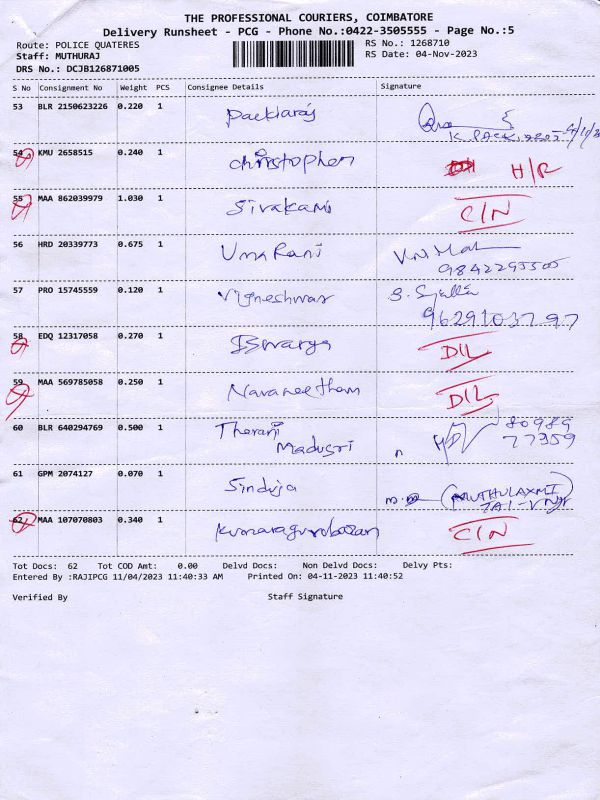 THE PROFESSIONAL COURIERS, COIMBATORE
Delivery Runsheet - PCG - Phone No.:0422-3505555 - Page No.:5
Route: POLICE QUATERES RS No.: 1268710
Staff: MUTHURAJ RS Date: 04-Nov-2023
DRS No.: DCJB126871005
S No Consignment No Weight PCS Consignee Details Signature
53 BLR 2150623226 0.220 1 Packiaraj
54 KMU 2658515 0.240 1 Christopher H/R
55 MAA 862039979 1.030 1 Sivakami C/N
56 HRD 20339773 0.675 1 Uma Rani
57 PRO 15745559 0.120 1 Vigneshwar
58 EDQ 12317058 0.270 1 Iswarya D/L
59 MAA 569785058 0.250 1 Navaneetham D/L
60 BLR 640294769 0.500 1 Therani Madusri 80989
77359
61 GPM 2074127 0.070 1 Sinduja (MUTHULAXMI
62 MAA 107070803 0.340 1 C/N
Tot Docs: 62 Tot COD Amt: 0.00 Delvd Docs: Non Delvd Docs: Delvy Pts:
Entered By :RAJIPCG 11/04/2023 11:40:33 AM Printed On: 04-11-2023 11:40:52
Verified By Staff Signature